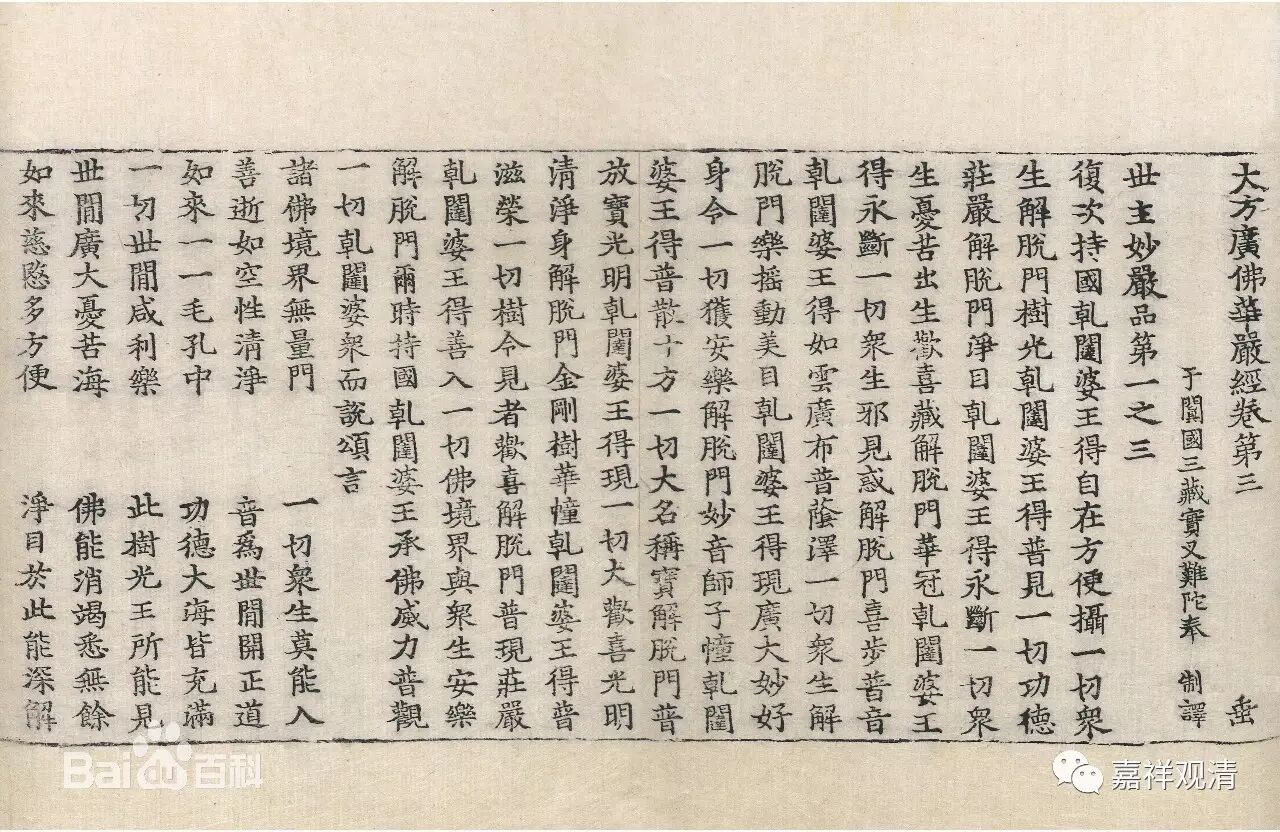 大方廣佛華嚴經卷第三 垂
于闐國三藏實叉難陀奉 制譯
世主妙嚴品第一之三
復次持國乹闥婆王得自在方便攝一切衆
生解脫門樹光乹闥婆王得普見一切功德
莊嚴解脫門淨目乹闥婆王得永斷一切衆
生憂苦出生歡喜藏解脫門華冠乹闥婆王
得永斷一切衆生邪見惑解脫門喜步普音
乹闥婆王得如雲廣布普蔭澤一切衆生解
脫門樂摇動美目乹闥婆王得現廣大妙好
身令一切獲安樂解脫門妙音師子幢乹闥
婆王得普散十方一切大名稱寶解脫門普
放寶光明乹闥婆王得現一切大歡喜光明
清淨身解脫門金剛樹華幢乹闥婆王得普
滋榮一切樹令見者歡喜解脫門普現莊嚴
乹闥婆王得善入一切佛境界與衆生安樂
解脫門爾時持國乹闥婆王承佛威力普觀
一切乹闥婆衆而說頌言
諸佛境界無量門 一切衆生莫能入
善逝如空性清淨 普爲世間開正道
如來一一毛孔中 功德大海皆充滿
一切世間咸利樂 此樹光王所能見
世間廣大憂苦海 佛能消竭悉無餘
如來慈愍多方便 淨目於此能深解
Baidu百科
嘉祥观清